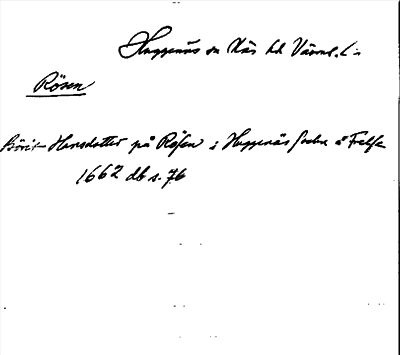 Huggenäs sn Näs hd Värml. l:n
Rösen
Börit Hansdotter på Rösen i Huggenäs Sochn å Frelse
1662 db s. 76